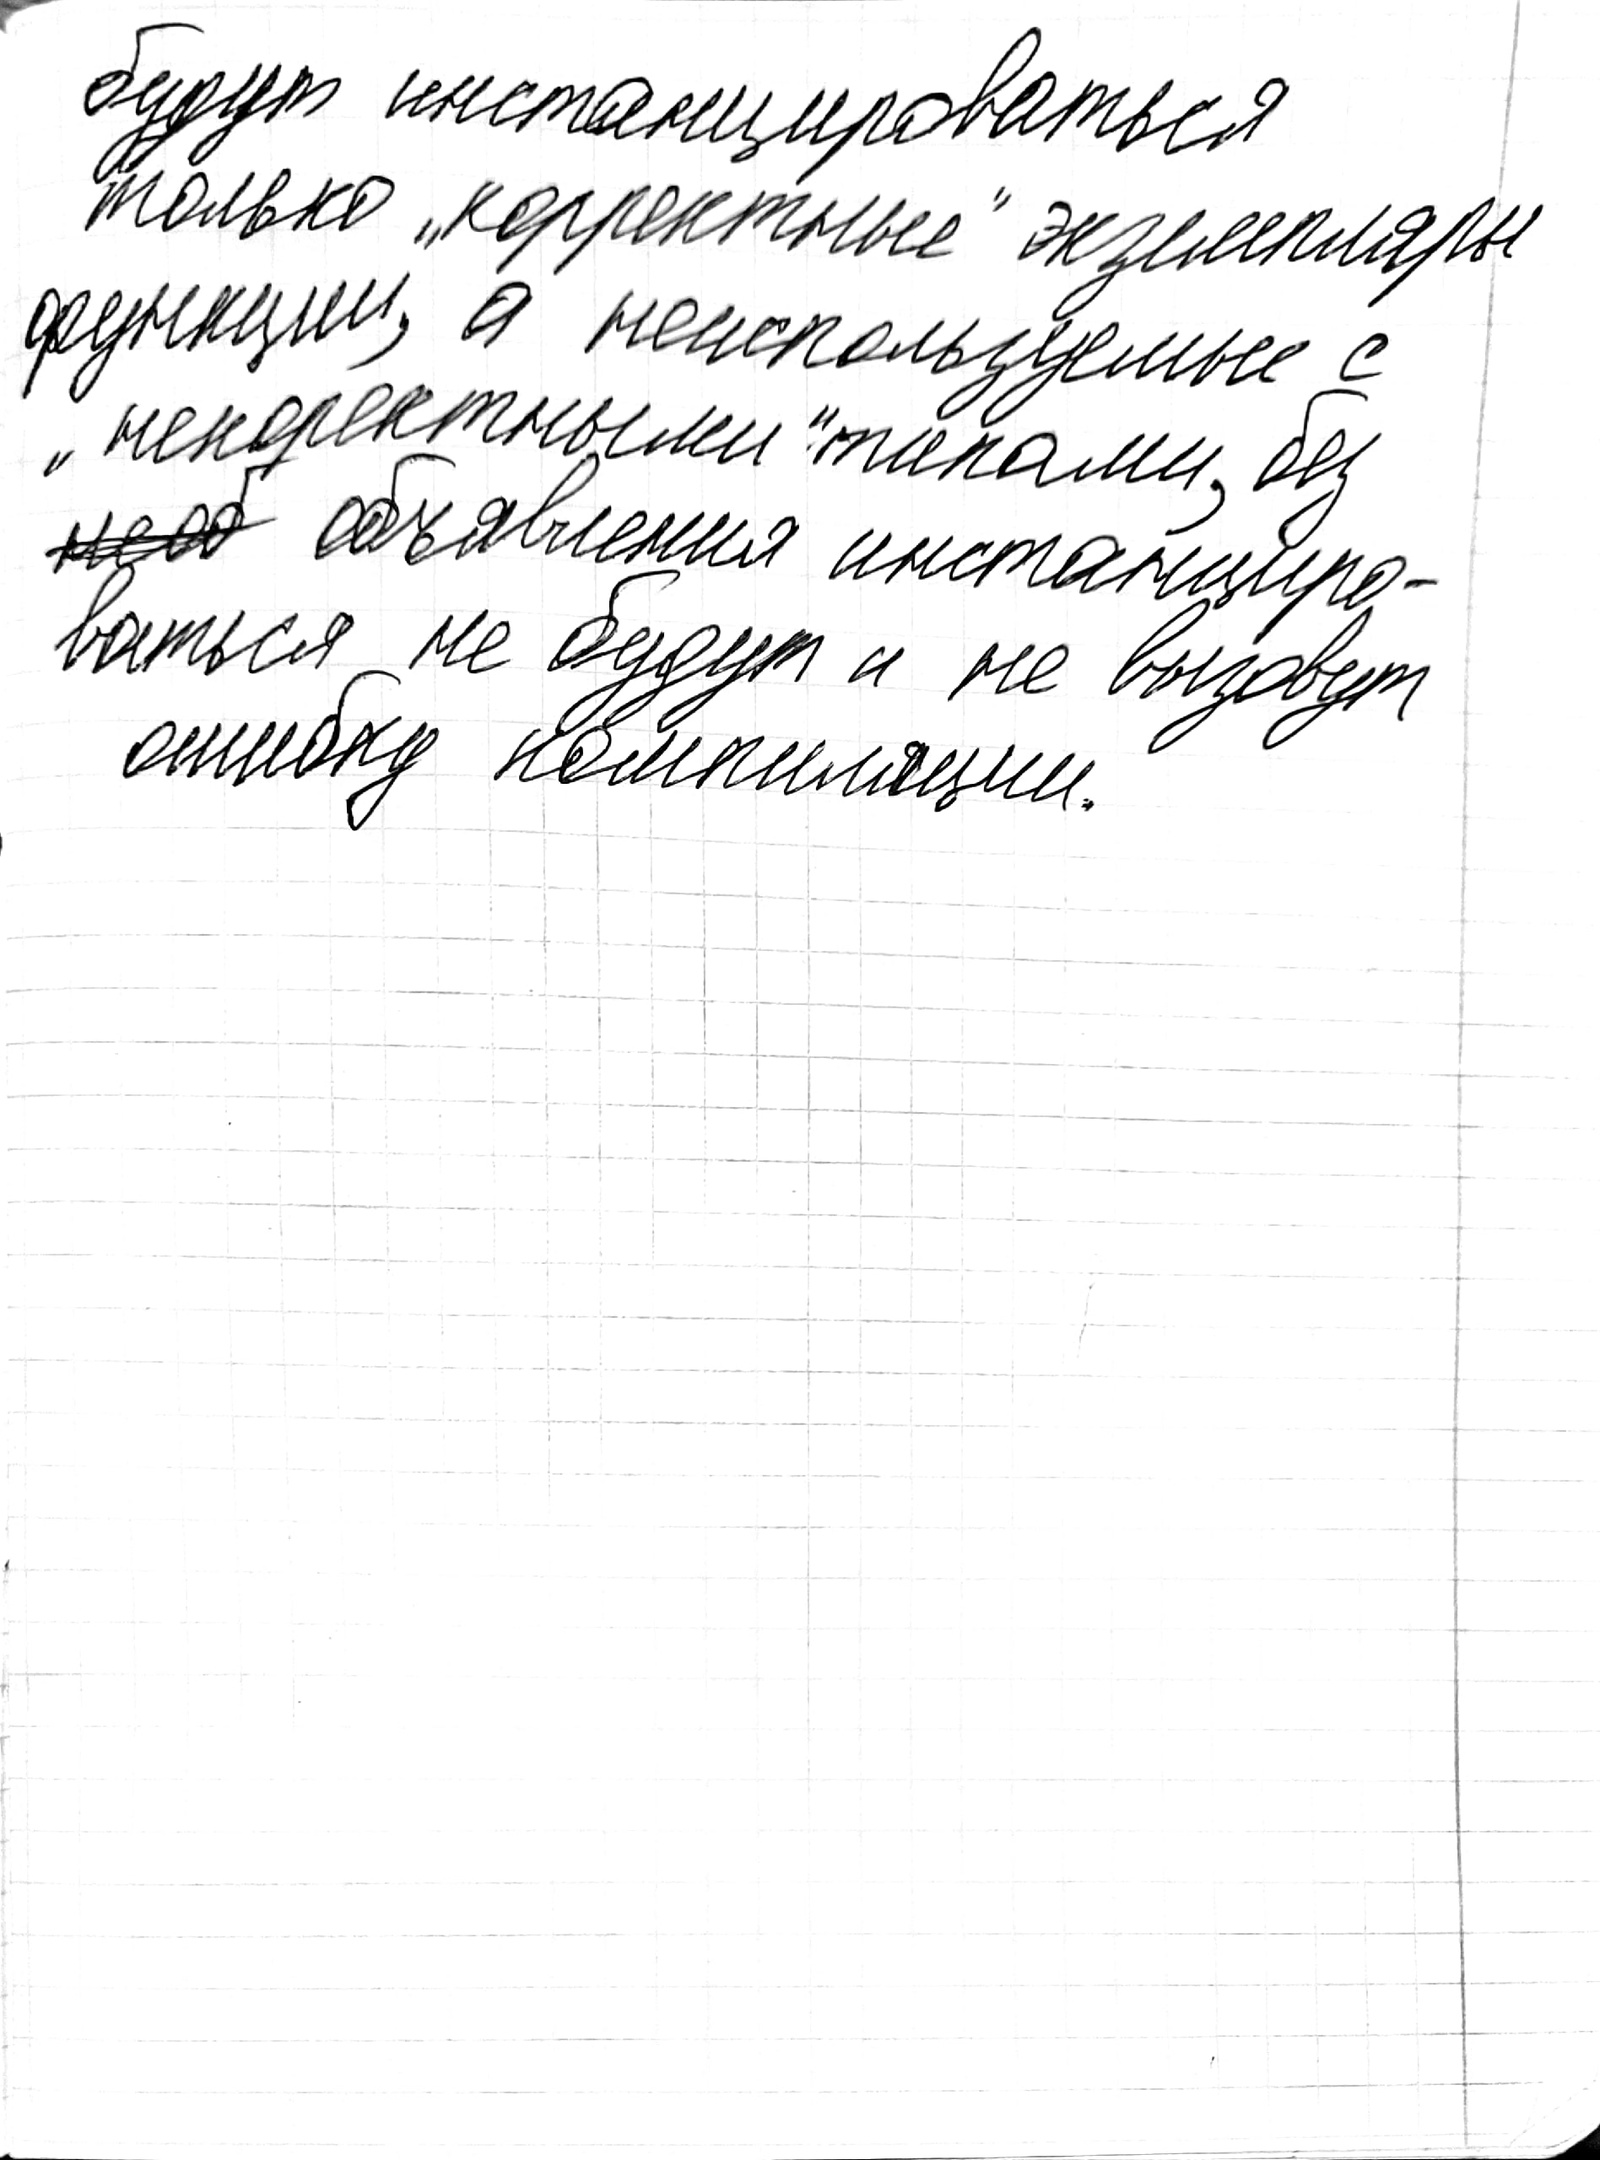 будут инстанцироваться
только „корректные" экземпляры
функции, а неиспользуемые с
„некоректными" типами, без
объявления инстанциро-
ваться не будут и не вызовут
ошибку компиляции.